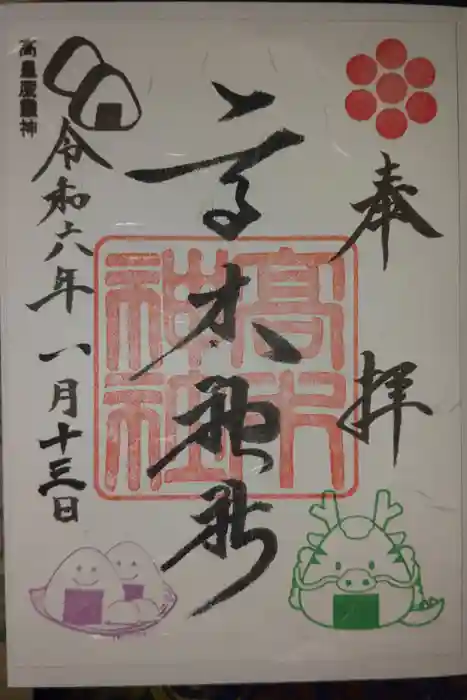 奉拝
高木神社
高木神社
令和六年 一月十三日
高皇産靈神